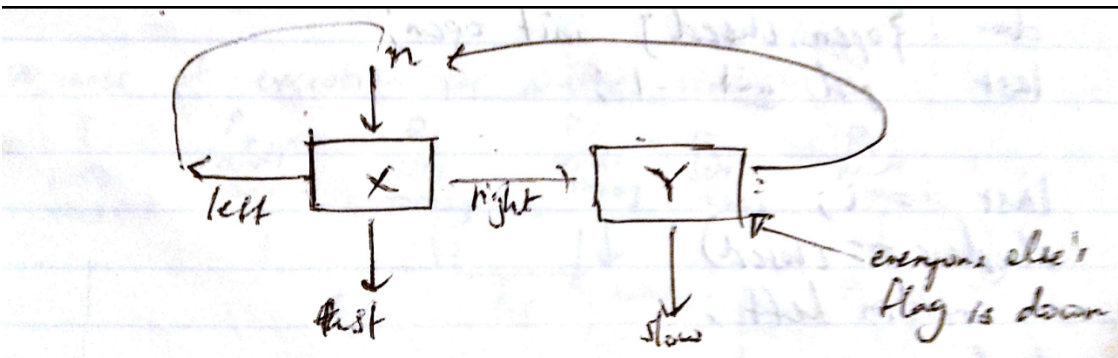 n
X
Y
left
right
fast
slow
everyone else's
flag is down